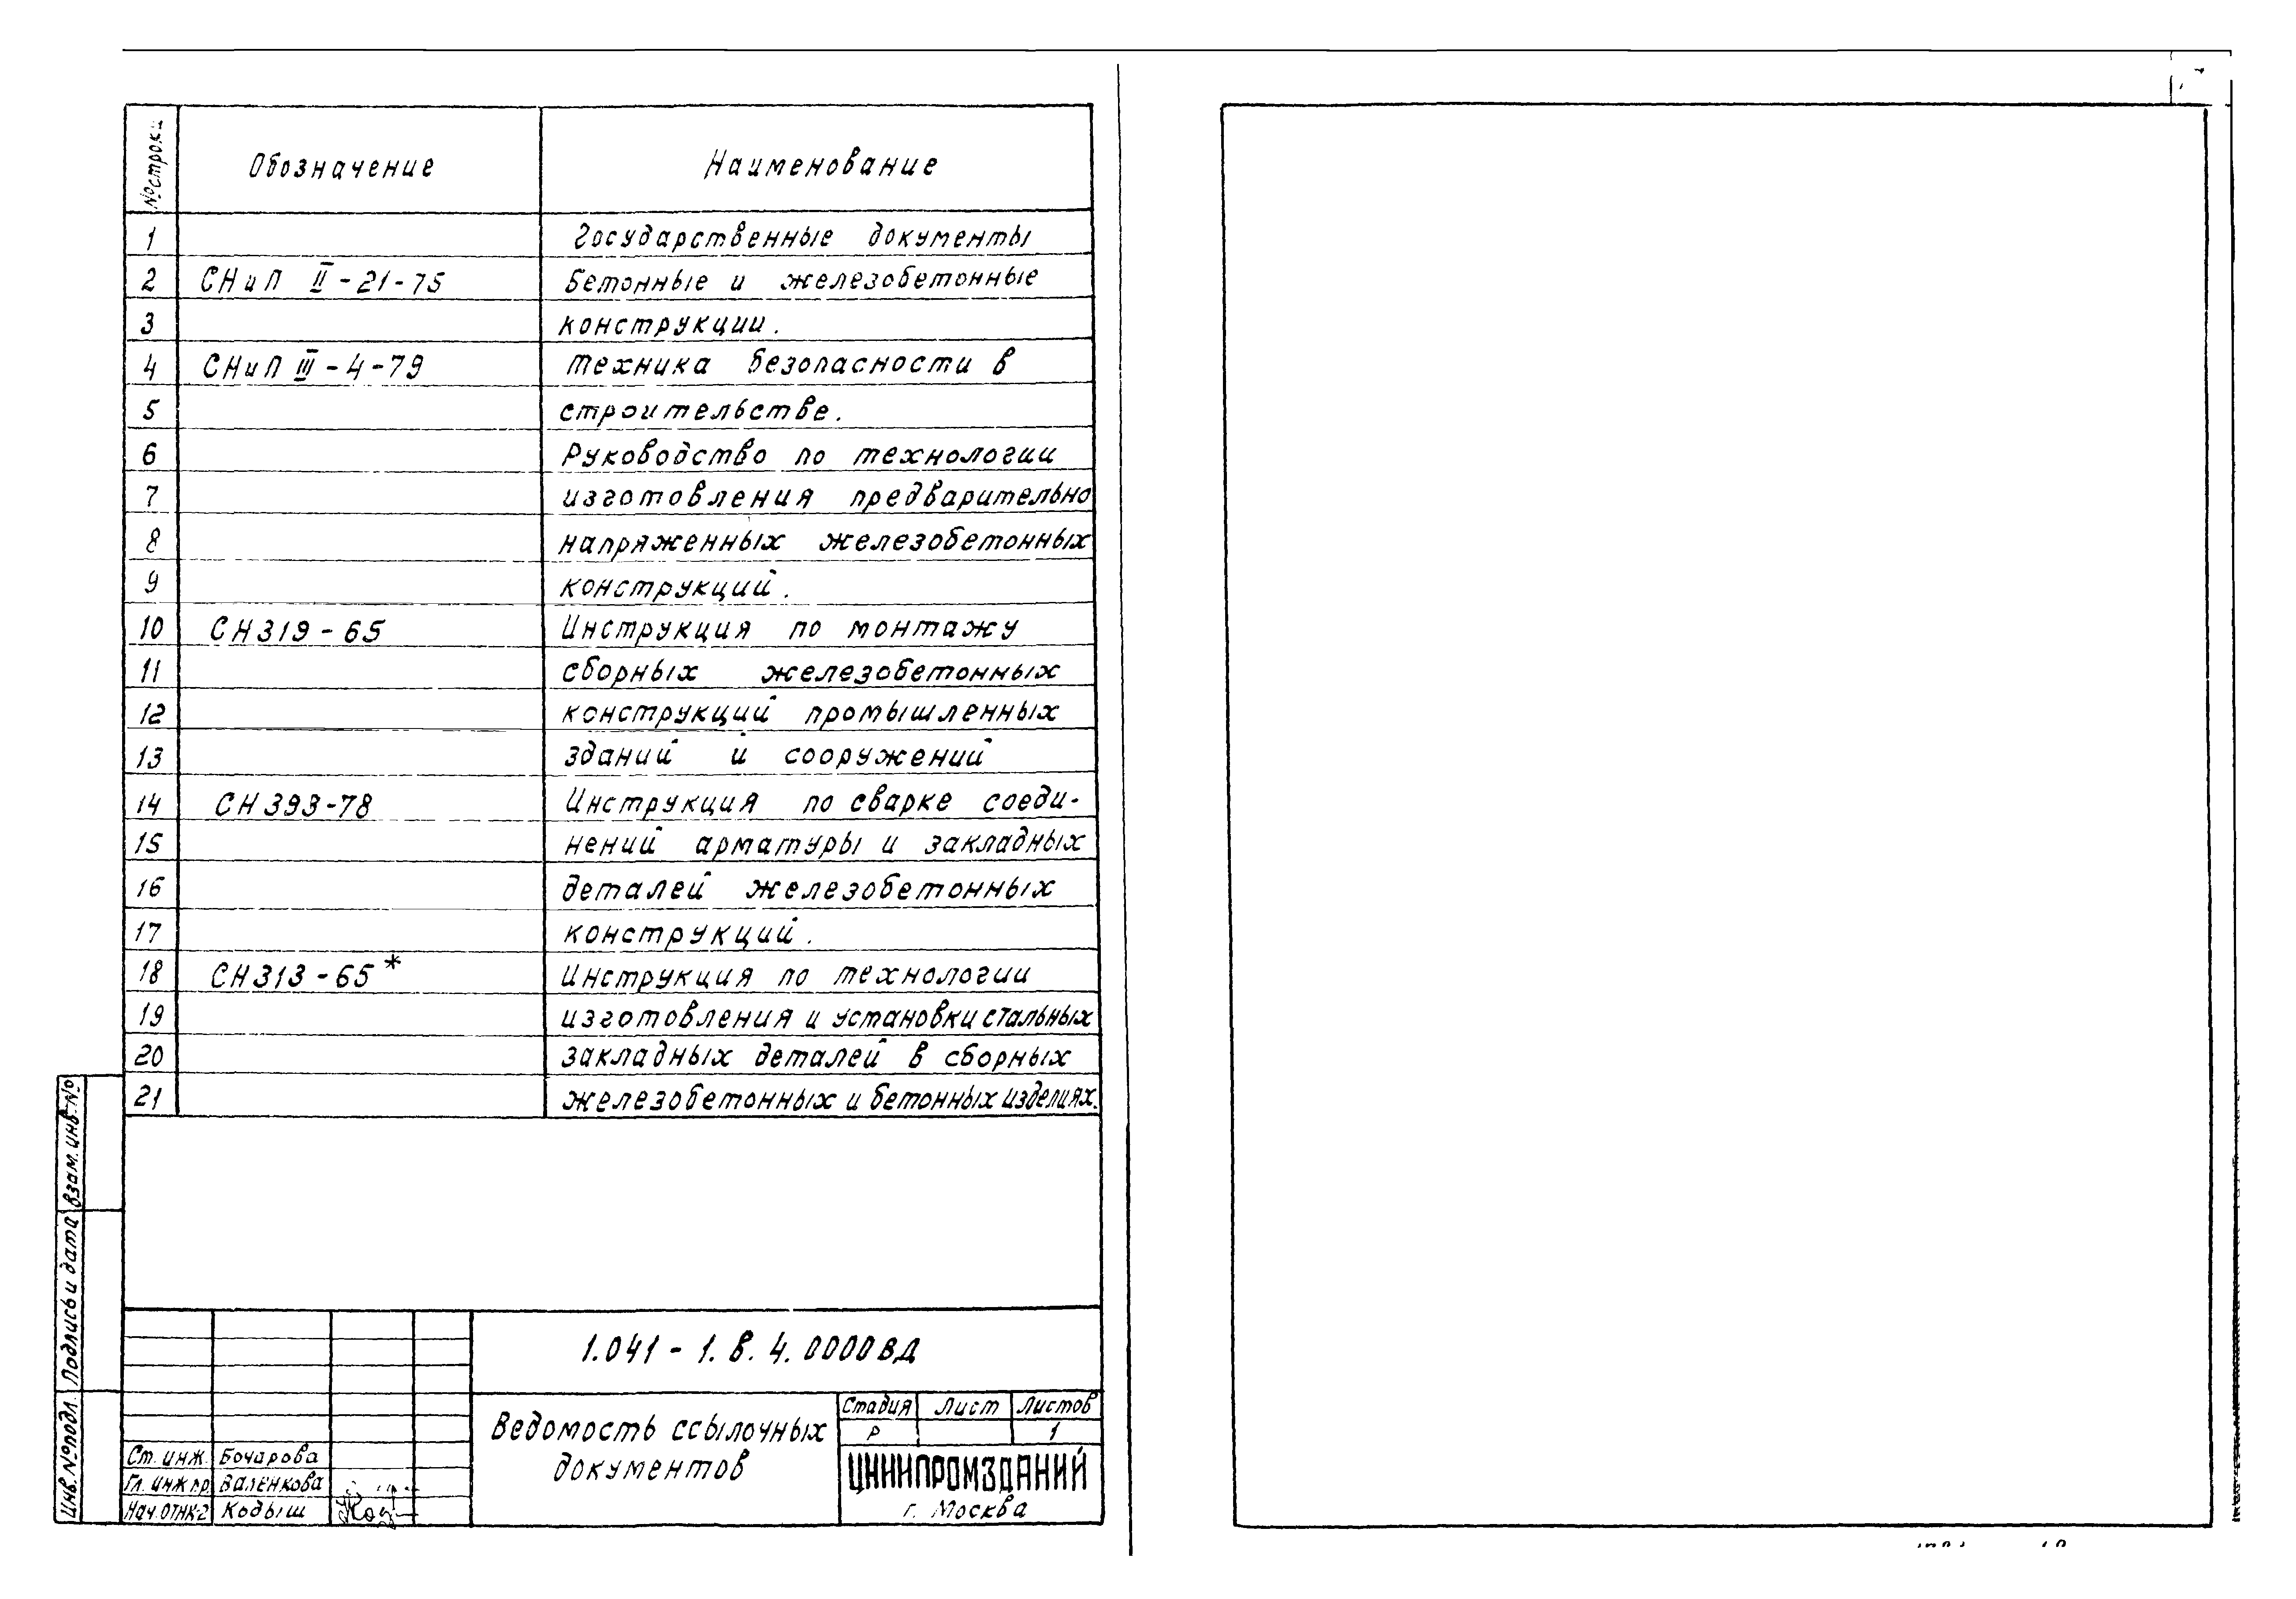 № строки Обозначение Наименование
1 Государственные документы
2 СНиП II-21-75 Бетонные и железобетонные
3 конструкции.
4 СНиП III-4-79 Техника безопасности в
5 строительстве.
6 Руководство по технологии
7 изготовления предварительно
8 напряженных железобетонных
9 конструкций.
10 СН319-65 Инструкция по монтажу
11 сборных железобетонных
12 конструкций промышленных
13 зданий и сооружений
14 СН393-78 Инструкция по сварке соеди-
15 нений арматуры и закладных
16 деталей железобетонных
17 конструкций.
18 СН313-65* Инструкция по технологии
19 изготовления и установки стальных
20 закладных деталей в сборных
21 железобетонных и бетонных изделиях.
Взам. инв. №
Подпись и дата
Инв. № подл.
1.041-1.В.4.0000ВД
Ведомость ссылочных
документов
Стадия Лист Листов
Р 1
ЦНИИПРОМЗДАНИЙ
г. Москва
Ст. инж. Бочарова
Гл. инж пр. Валенкова
Нач. ОТНК-2 Кодыш